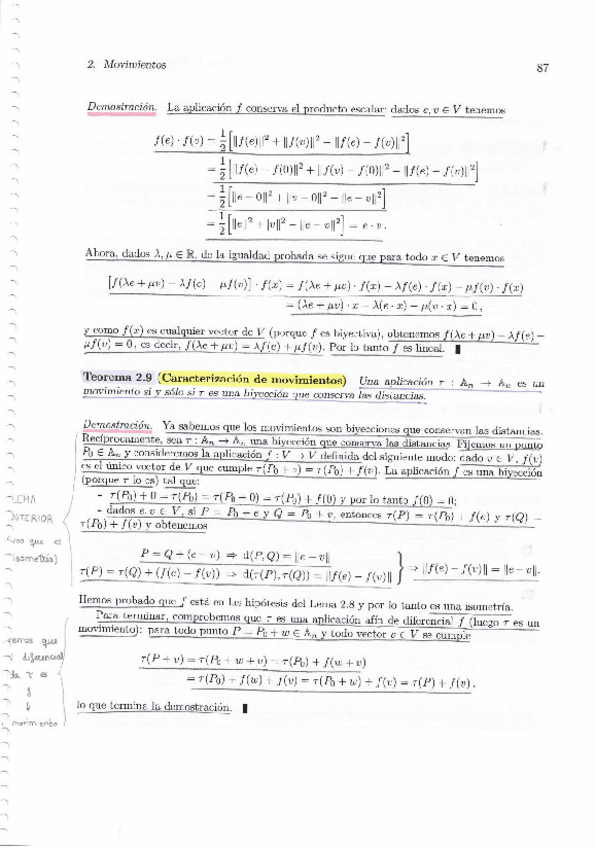 2. Movimientos 87
Demostración. La aplicación f conserva el producto escalar: dados e, v ∈ V tenemos
f(e) · f(v) = 1/2 [‖f(e)‖² + ‖f(v)‖² − ‖f(e) − f(v)‖²]
= 1/2 [‖f(e) − f(0)‖² + ‖f(v) − f(0)‖² − ‖f(e) − f(v)‖²]
= 1/2 [‖e − 0‖² + ‖v − 0‖² − ‖e − v‖²]
= 1/2 [‖e‖² + ‖v‖² − ‖e − v‖²] = e · v.
Ahora, dados λ, μ ∈ ℝ, de la igualdad probada se sigue que para todo x ∈ V tenemos
[f(λe + μv) − λf(e) − μf(v)] · f(x) = f(λe + μv) · f(x) − λf(e) · f(x) − μf(v) · f(x)
= (λe + μv) · x − λ(e · x) − μ(v · x) = 0,
y como f(x) es cualquier vector de V (porque f es biyectiva), obtenemos f(λe + μv) − λf(e) −
μf(v) = 0, es decir, f(λe + μv) = λf(e) + μf(v). Por lo tanto f es lineal. ∎
Teorema 2.9 (Caracterización de movimientos) Una aplicación τ : 𝔸ₙ → 𝔸ₙ es un
movimiento si y sólo si τ es una biyección que conserva las distancias.
Demostración. Ya sabemos que los movimientos son biyecciones que conservan las distancias.
Recíprocamente, sea τ : 𝔸ₙ → 𝔸ₙ una biyección que conserva las distancias. Fijemos un punto
P₀ ∈ 𝔸ₙ y consideremos la aplicación f : V → V definida del siguiente modo: dado v ∈ V, f(v)
es el único vector de V que cumple τ(P₀ + v) = τ(P₀) + f(v). La aplicación f es una biyección
(porque τ lo es) tal que:
- τ(P₀) + 0 = τ(P₀) = τ(P₀ + 0) = τ(P₀) + f(0) y por lo tanto f(0) = 0;
- dados e, v ∈ V, si P = P₀ + e y Q = P₀ + v, entonces τ(P) = τ(P₀) + f(e) y τ(Q) =
τ(P₀) + f(v) y obtenemos
P = Q + (e − v) ⇒ d(P, Q) = ‖e − v‖
τ(P) = τ(Q) + (f(e) − f(v)) ⇒ d(τ(P), τ(Q)) = ‖f(e) − f(v)‖ } ⇒ ‖f(e) − f(v)‖ = ‖e − v‖.
LEMA
ANTERIOR
que es
isometría)
Hemos probado que f está en las hipótesis del Lema 2.8 y por lo tanto es una isometría.
Para terminar, comprobemos que τ es una aplicación afín de diferencial f (luego τ es un
movimiento): para todo punto P = P₀ + w ∈ 𝔸ₙ y todo vector v ∈ V se cumple
τ(P + v) = τ(P₀ + w + v) = τ(P₀) + f(w + v)
= τ(P₀) + f(w) + f(v) = τ(P₀ + w) + f(v) = τ(P) + f(v),
lo que termina la demostración. ∎
vemos que
diferencial
de τ es
f
⇓
movimiento